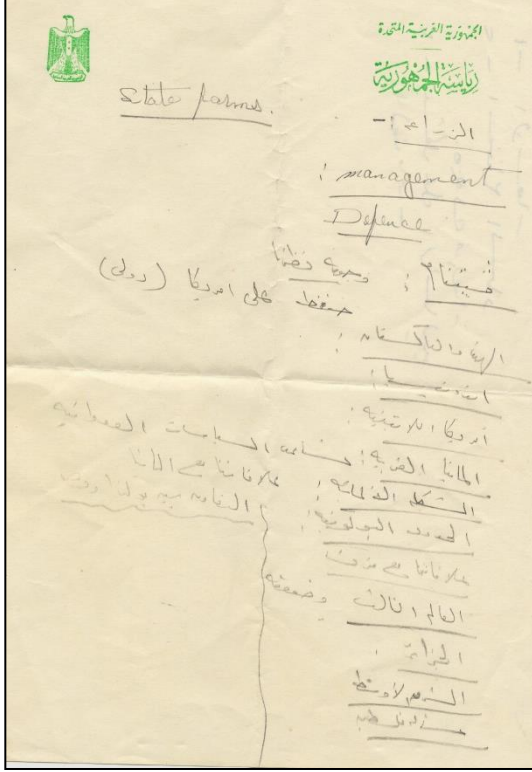 الجمهورية العربية المتحدة
رياسة الجمهورية
State farms.
الزراعة :-
management :
Defence
فيتنام : وجهة نظرنا
ضغط على امريكا (دولى)
الهند والباكستان :
اندونيسيا :
امريكا اللاتينية :
المانيا الغربية : السياسات العدوانية
المشكلة الالمانية : علاقاتنا مع المانيا
الحدود البولونية : التعاون بين بولندا
علاقاتنا مع
العالم الثالث وضعفه
الجزائر :
الشرق الأوسط